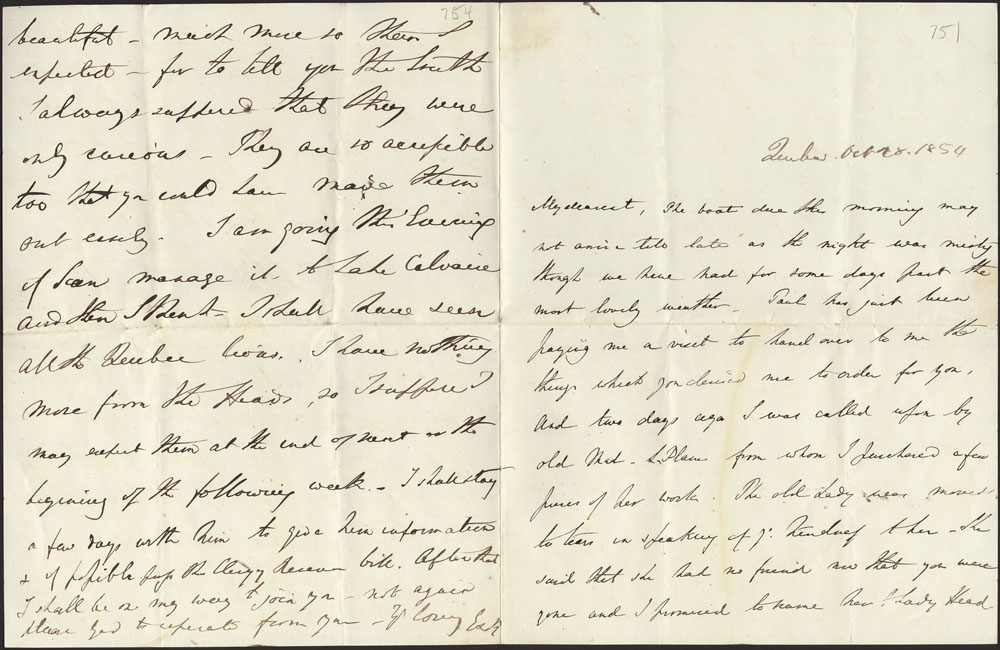 751
Quebec. Oct 28. 1854
My dearest, The boat due this morning may
not arrive till late as the night was misty
though we have had for some days past the
most lovely weather – Paul has just been
paying me a visit to hand over to me the
things which you desired me to order for you,
And two days ago I was called upon by
old Mad – from whom I purchased a few
pieces of her work. The old Lady was moved
to tears in speaking of yr. kindness to her – She
said that she had no friend now that you were
gone and I promised to name her to Lady Head
754
beautiful – much more so than I
expected – for to tell you the truth
I always supposed that they were
only curious – They are so accessible
too that you could have made them
out easily. I am going this Evening
if I can manage it to Lake Calvaire
and then I think I shall have seen
all the Quebec lions. I have nothing
more from the Heads, so I suppose I
may expect them at the end of next or the
beginning of the following week. – I shall stay
a few days with him to give him information
& if possible pass the Clergy Reserve bill. After that
I shall be on my way to join you – not again
please God to separate from you – Yr loving